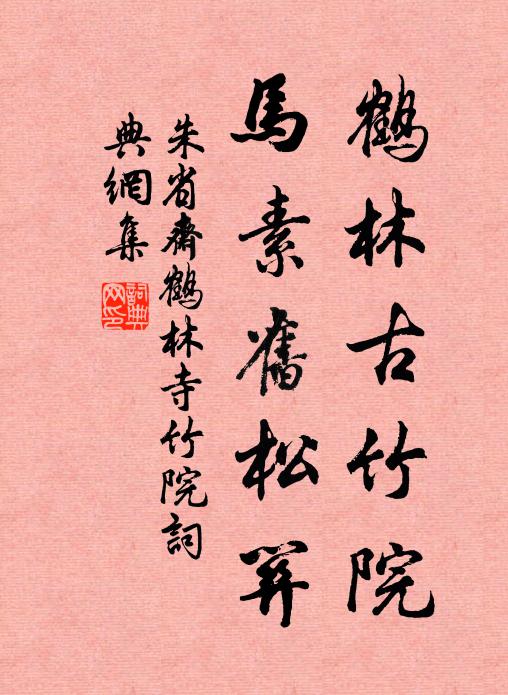 鶴林古竹院
馬素舊松關
朱省齋鶴林寺竹院詞
典網集
詞典網印